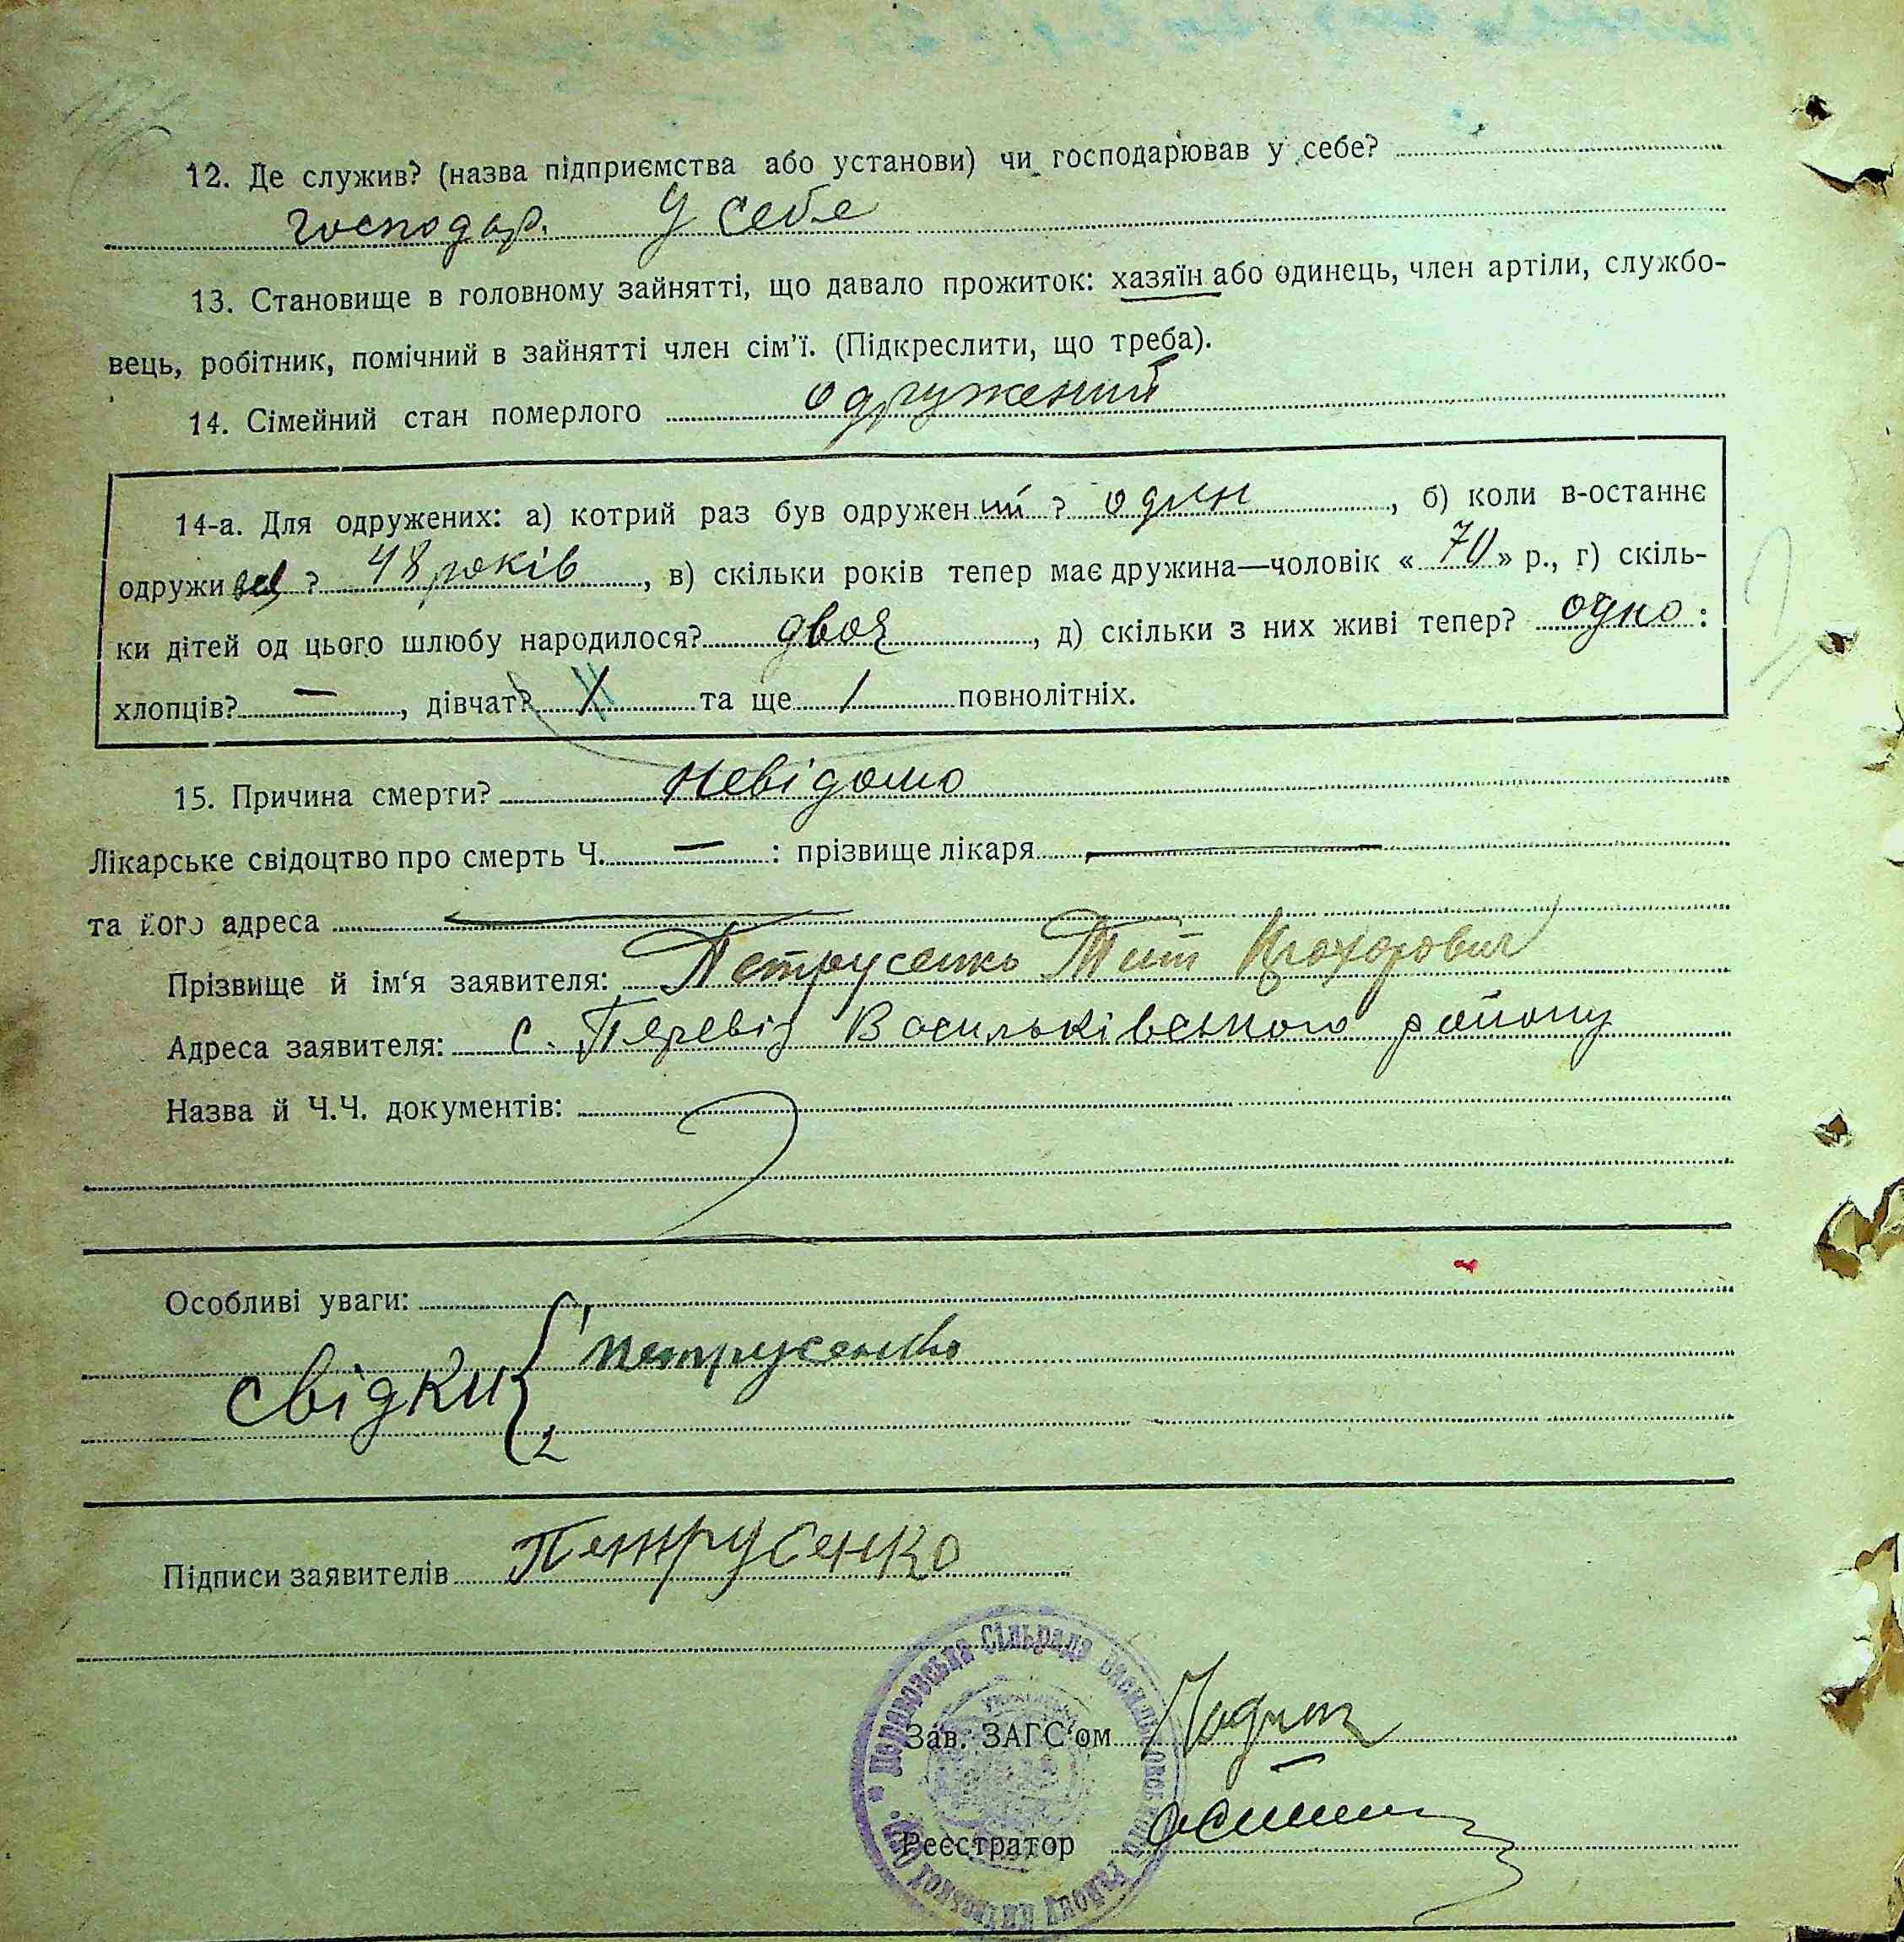 12. Де служив? (назва підприємства або установи) чи господарював у себе?
господар. у себе
13. Становище в головному зайнятті, що давало прожиток: хазяїн або одинець, член артіли, службо-
вець, робітник, помічний в зайнятті член сім'ї. (Підкреслити, що треба).
14. Сімейний стан померлого одружений
14-а. Для одружених: а) котрий раз був одружен ий ? один, б) коли в-останнє
одружи вся ? 48 років, в) скільки років тепер має дружина—чоловік « 70 » р., г) скіль-
ки дітей од цього шлюбу народилося? двоя, д) скільки з них живі тепер? одно :
хлопців? —, дівчат? та ще / повнолітніх.
15. Причина смерти? Невідомо
Лікарське свідоцтво про смерть Ч. — : прізвище лікаря —
та його адреса —
Прізвище й ім'я заявителя: Петрусенко Тит Прохорович
Адреса заявителя: с. Перевіз Васильківського району
Назва й Ч.Ч. документів:
Особливі уваги:
свідки { 1 Петрусенко
2
Підписи заявителів Петрусенко
Перевозська Сільрада Васильківського Району Київської Окр.
Зав. ЗАГС'ом
Реєстратор